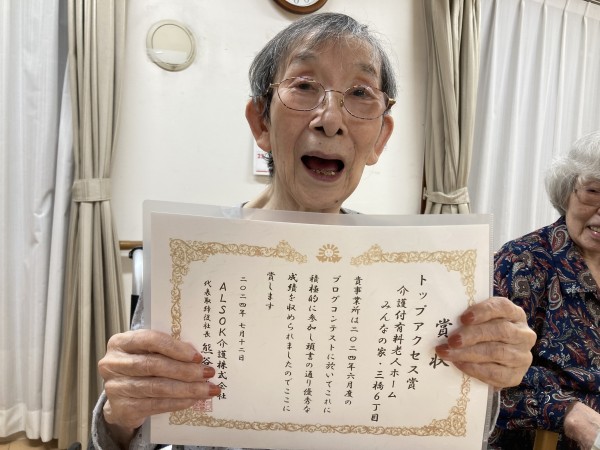 賞状
トップアクセス賞
介護付有料老人ホーム
みんなの家・三橋6丁目
貴事業所は二〇二四年六月度の
ブログコンテストに於いてこれに
積極的に参加し頭書の通り優秀な
成績を収められましたのでここに
賞します
二〇二四年 七月十二日
ALSOK介護株式会社
代表取締役社長 熊谷